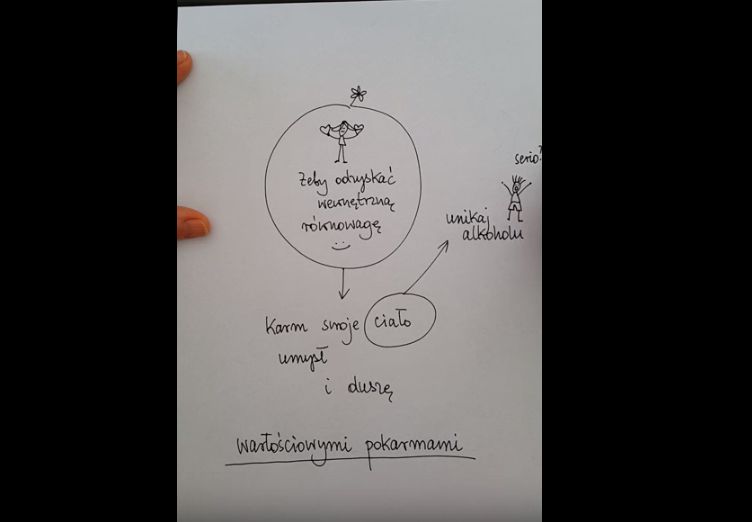 Żeby odzyskać
wewnętrzną
równowagę
Karm swoje ciało
umysł
i duszę
wartościowymi pokarmami
unikaj
alkoholu
serio?